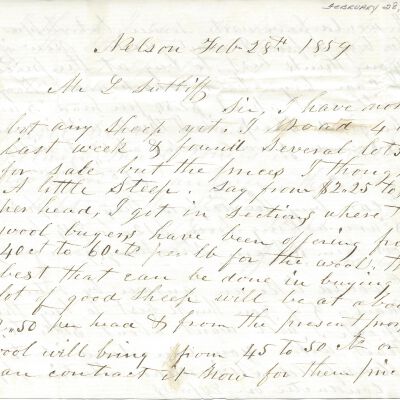 FEBRUARY 28,
Nelson Feb 28th 1859
Mr L Sutliff
Sir, I have not
bot any sheep yet. I
last week & found several lots
for sale but the prices I though
A little Steep. Say from $2.25 to
per head, I got in sections where t
wool buyers have been offering fro
40 ct to 60 cts per lb for the wool, th
best that can be done in buying
lot of good sheep will be at abou
.50 per head & from the present pros
ool will bring from 45 to 50 cts or
an contract it now for them price